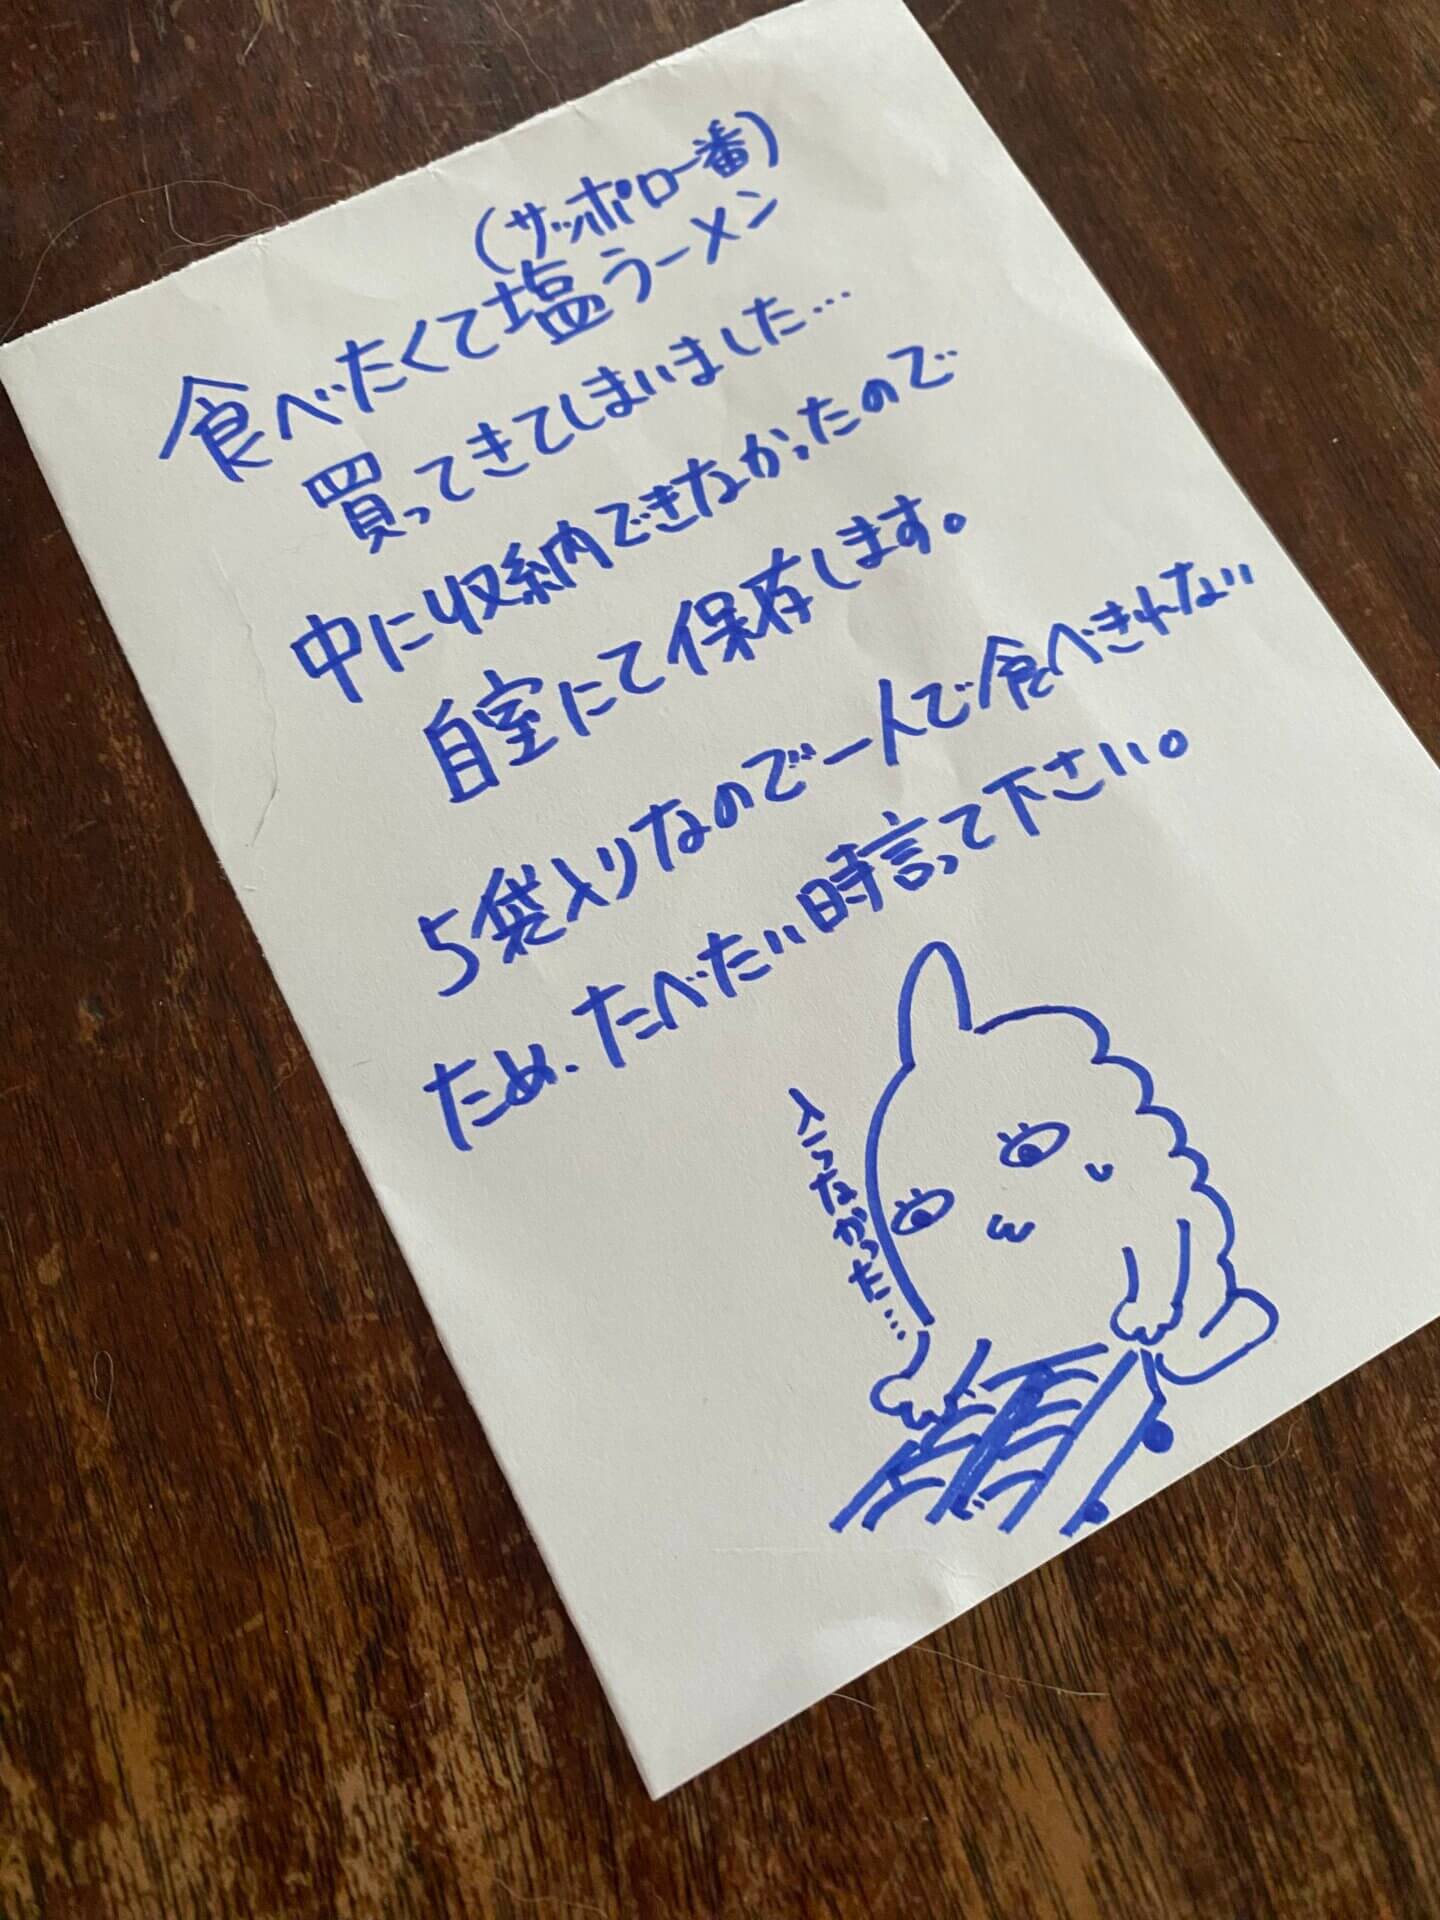 (サッポロ一番)
食べたくて塩ラーメン
買ってきてしまいました…
中に収納できなかったので
自室にて保存します。
5袋入りなので一人で食べきれない
ため、たべたい時言って下さい。
入らなかった…